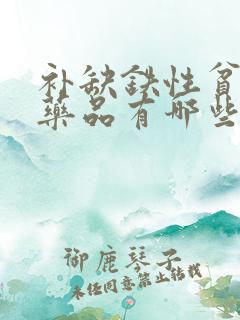 补缺铁性贫
药品有哪些
御鹿琴子
未经同意禁止转载